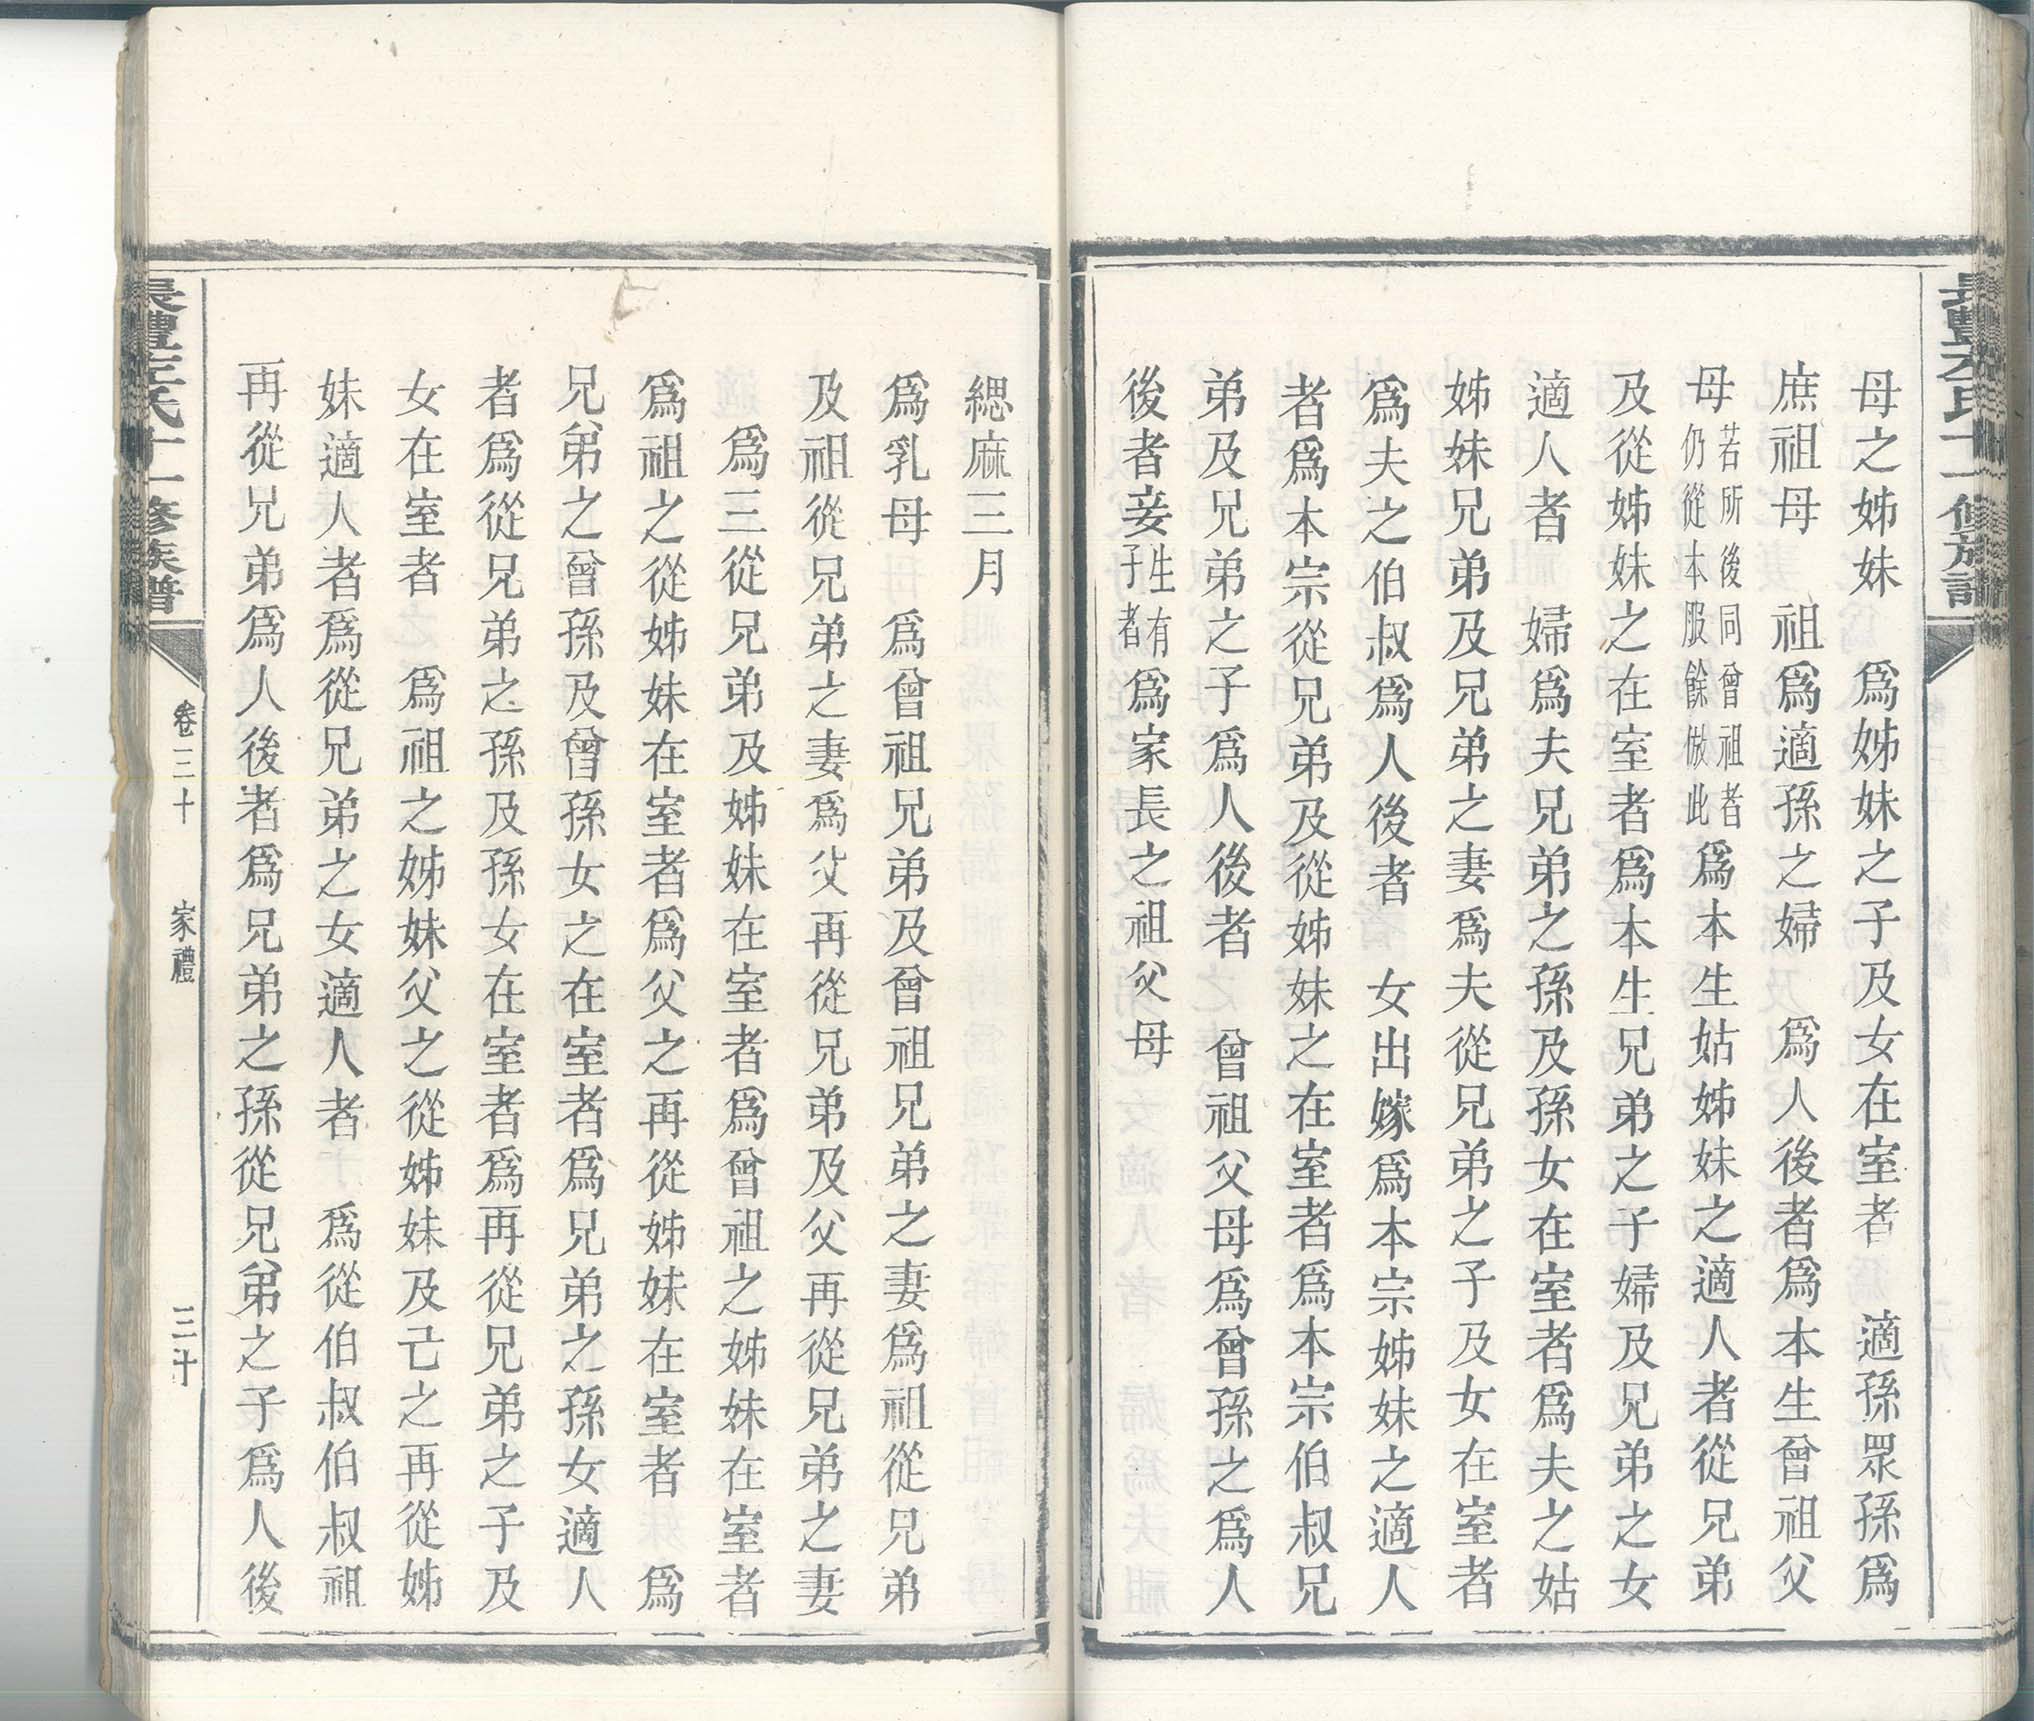 母之姊妹　爲姊妹之子及女在室者　適孫眾孫爲
庶祖母　祖爲適孫之婦　爲人後者爲本生曾祖父
母若所後同曾祖者仍從本服餘倣此爲本生姑姊妹之適人者從兄弟
及從姊妹之在室者爲本生兄弟之子婦及兄弟之女
適人者　婦爲夫兄弟之孫及孫女在室者爲夫之姑
姊妹兄弟及兄弟之妻爲夫從兄弟之子及女在室者
爲夫之伯叔爲人後者　女出嫁爲本宗姊妹之適人
者爲本宗從兄弟及從姊妹之在室者爲本宗伯叔兄
弟及兄弟之子爲人後者　曾祖父母爲曾孫之爲人
後者妾生有子者爲家長之祖父母
緦麻三月
爲乳母　爲曾祖兄弟及曾祖兄弟之妻爲祖從兄弟
及祖從兄弟之妻爲父再從兄弟及父再從兄弟之妻
爲三從兄弟及姊妹在室者爲曾祖之姊妹在室者
爲祖之從姊妹在室者爲父之再從姊妹在室者　爲
兄弟之曾孫及曾孫女之在室者爲兄弟之孫女適人
者爲從兄弟之孫及孫女在室者爲再從兄弟之子及
女在室者　爲祖之姊妹父之從姊妹及己之再從姊
妹適人者爲從兄弟之女適人者　爲從伯叔伯叔祖
再從兄弟爲人後者爲兄弟之孫從兄弟之子爲人後
氏十一修族譜
卷三十　家禮　三十